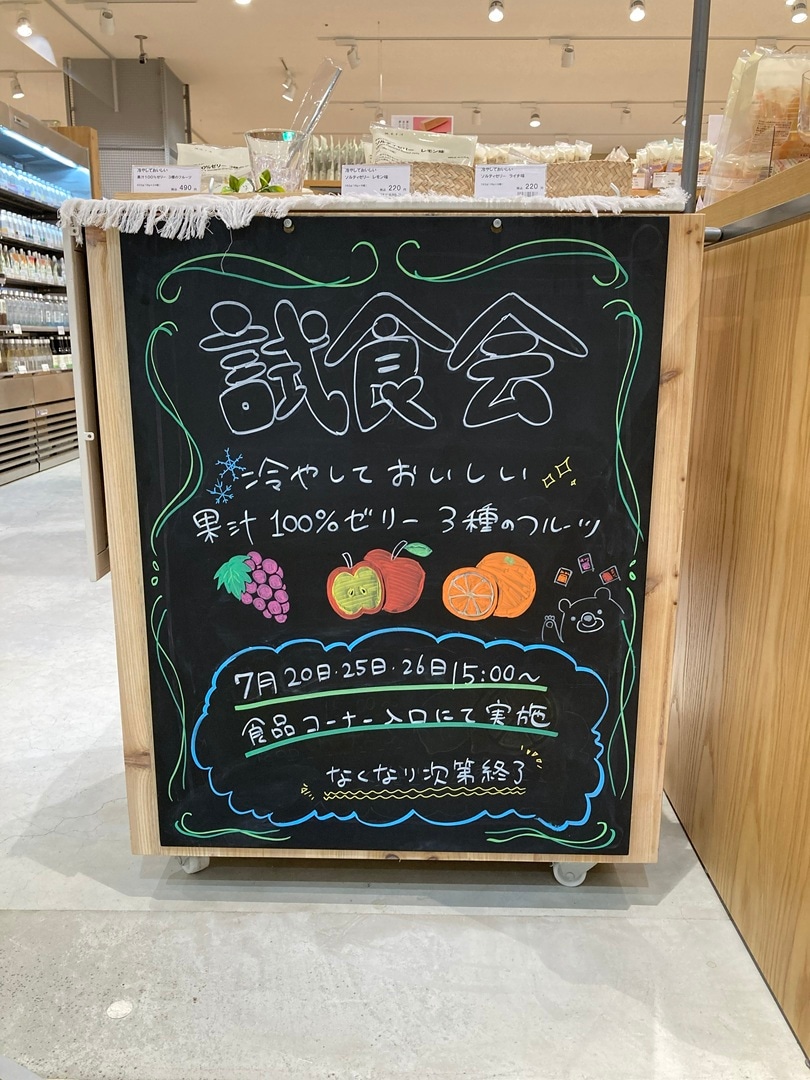 冷やしておいしい
果汁100%ゼリー 3種のフルーツ
490
冷やしておいしい
ソルティゼリー レモン味
220
冷やしておいしい
ソルティゼリー ライチ味
220
試食会
冷やして おいしい
果汁100%ゼリー 3種のフルーツ
7月20日・25日・26日 15:00〜
食品コーナー入口にて実施
なくなり次第終了